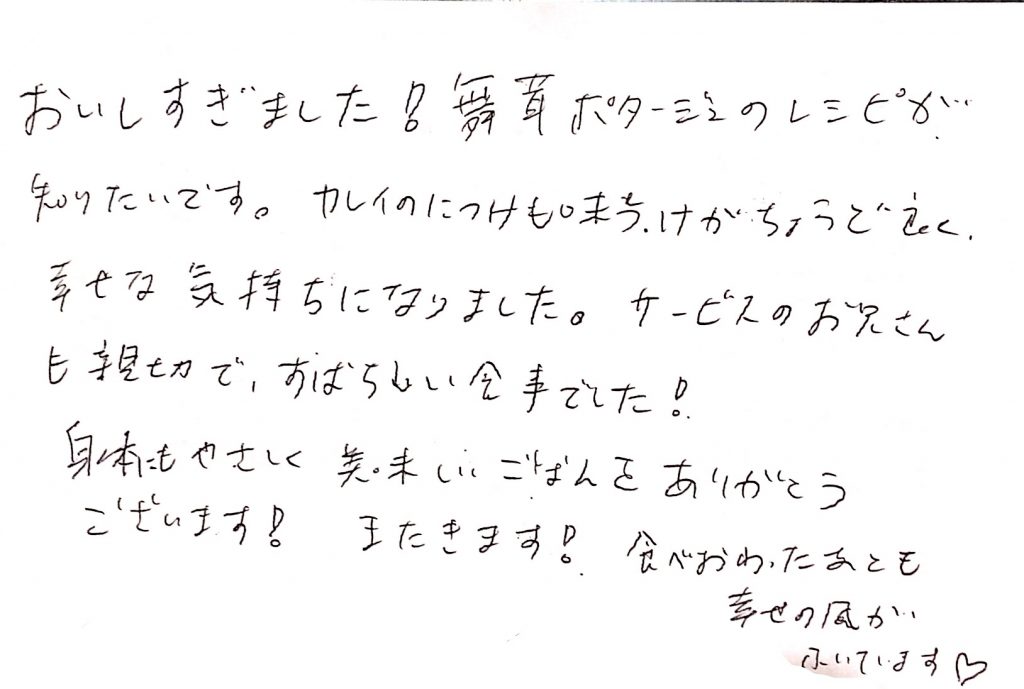 おいしすぎました！舞茸ポタージュのレシピが
知りたいです。カレイのにつけも味つけがちょうど良く、
幸せな気持ちになりました。サービスのお兄さん
も親切で、すばらしい食事でした！
身体にもやさしく美味しいごはんをありがとう
ございます！またきます！食べおわったあとも
幸せの風が
ふいています♡